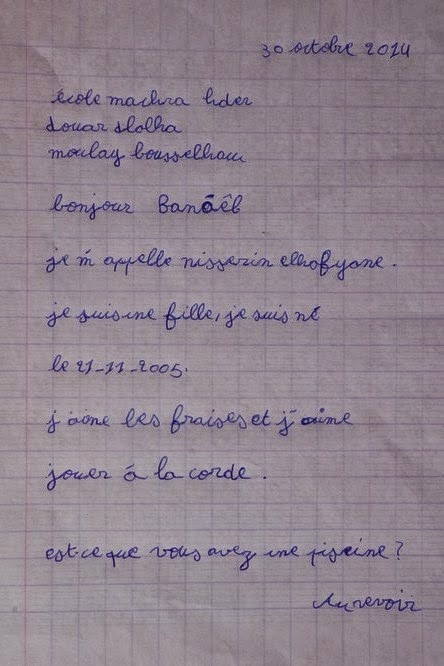 30 octobre 2014
école machra hder
douar dlolha
moulay bousselham
bonjour Banáêl
je m'appelle nisserin elhofyane.
je suis une fille, je suis né
le 21-11-2005.
j'aime les fraises et j'aime
jouer á la corde.
est-ce que vous avez une piscine?
Au revoir